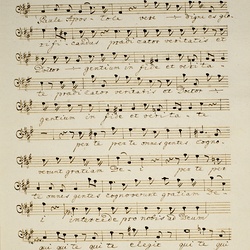 Paule Apostole vere digne es glo-
rificandus praedicator veritatis et
Doctor gentium in fide et verita
te praedicator veritatis et Doctor
gentium in fide et verita te
per te per te omnes gentes cogno-
verunt gratiam De i per te per
te omnes gentes cognoverunt gratiam De-
i intercede pro nobis ad Deum
qui qui te qui te elegit qui te